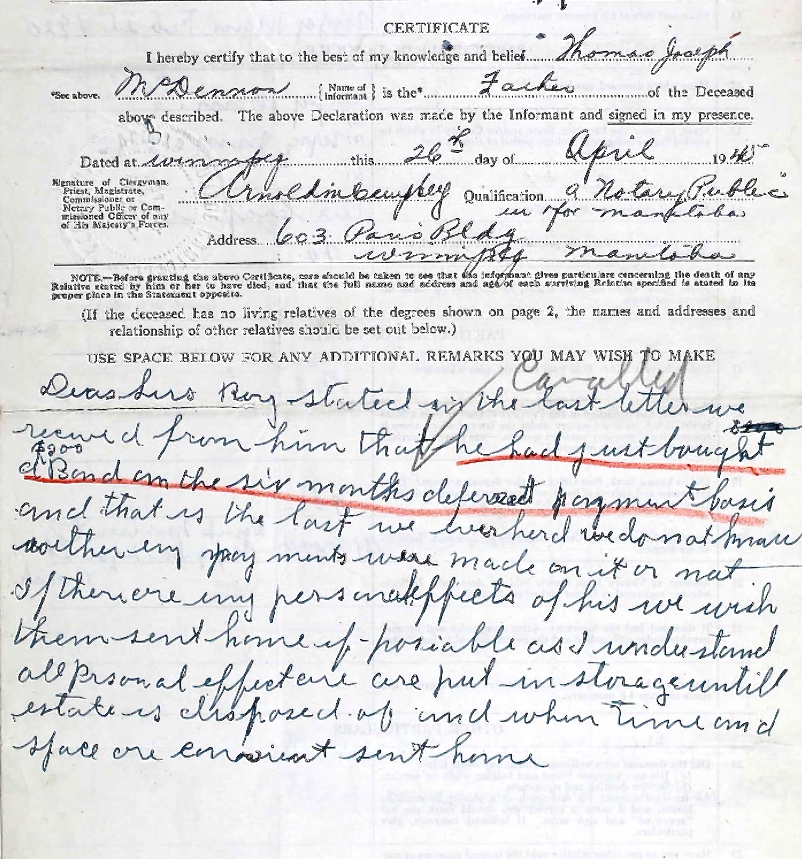 CERTIFICATE
I hereby certify that to the best of my knowledge and belief Thomas Joseph
*See above. McDennon {Name of Informant} is the* Father of the Deceased
above described. The above Declaration was made by the Informant and signed in my presence.
Dated at Winnipeg this 26th day of April 1945
Signature of Clergyman, Priest, Magistrate, Commissioner or Notary Public or Commissioned Officer of any of His Majesty's Forces. Arnold Qualification a Notary Public
in & for manitoba
Address 603 Paris Bldg
Winnipeg Manitoba
NOTE.—Before granting the above Certificate, care should be taken to see that the informant gives particulars concerning the death of any
Relative stated by him or her to have died, and that the full name and address and age of each surviving Relative specified is stated in its
proper place in the Statement opposite.
(If the deceased has no living relatives of the degrees shown on page 2, the names and addresses and
relationship of other relatives should be set out below.)
USE SPACE BELOW FOR ANY ADDITIONAL REMARKS YOU MAY WISH TO MAKE
Cancelled
Dear Sirs Boy stated in the last letter we
received from him that he had just bought
$200
a Bond on the six months deferred payment basis
and that is the last we ever herd we do not know
wether eny payments were made on it or not
If there are eny personal effects of his we wish
them sent home if posiable as I understand
all Prsonal effect are put in storage untill
estate is disposed of and when Time and
space are sent home